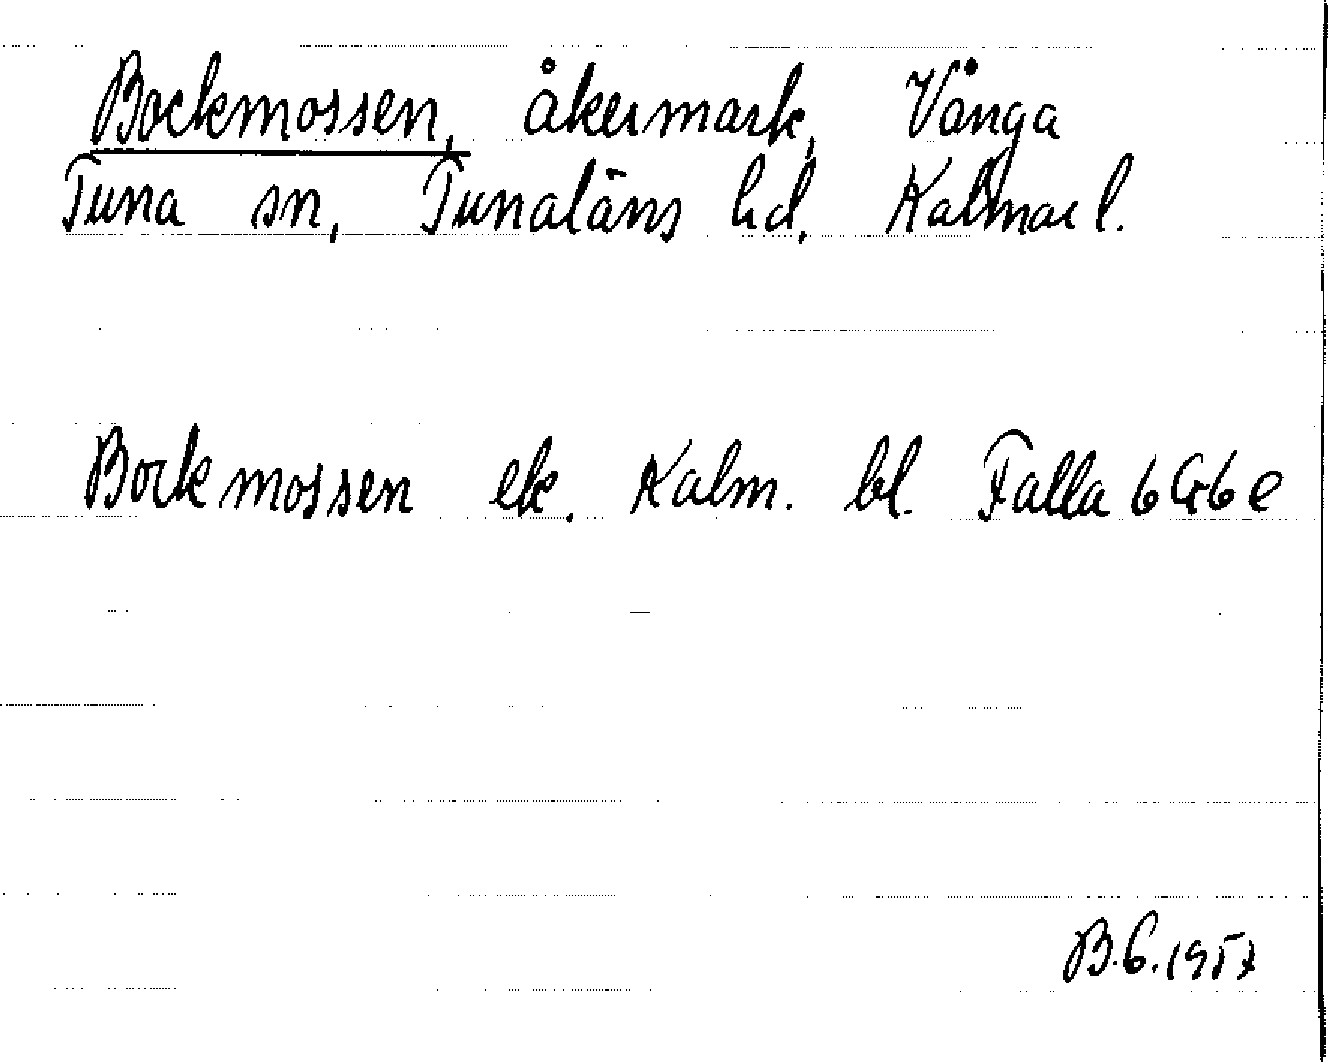 Bockmossen, åkermark, Vånga
Tuna sn, Tunaläns hd, Kalmar l.
Bockmossen ek. Kalm. bl. Falla 6G6e
B.G.1957